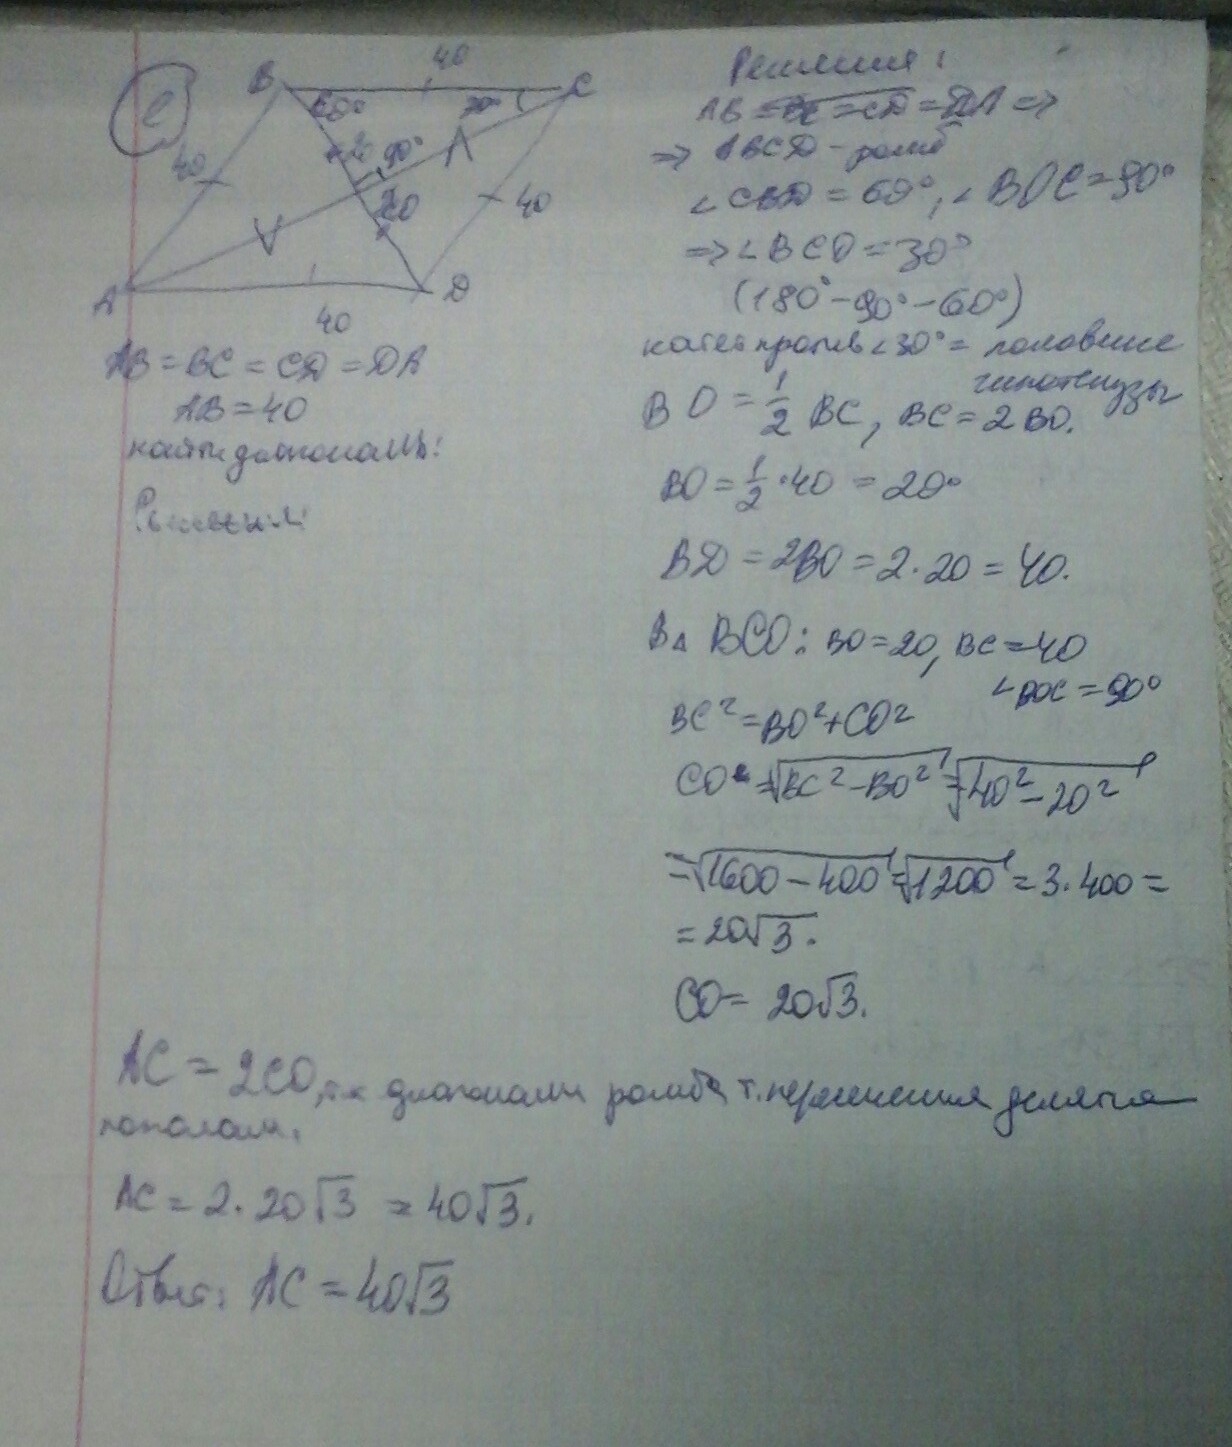 в
B 40 C
60° 30°
40 20 90°
20 40
A D
40
AB = BC = CD = DA
AB = 40
найти диагональ:
Решения:
AB = BC = CD = DA =>
=> ABCD - ромб
∠ CBD = 60°, ∠ BOC = 90°
=> ∠ BCO = 30°
(180° - 90° - 60°)
катет против ∠ 30° = половине
гипотенузы
BO = 1/2 BC, BC = 2BO.
BO = 1/2 · 40 = 20°
BD = 2BO = 2 · 20 = 40.
В △ BCO: BO = 20, BC = 40
∠ BOC = 90°
BC² = BO² + CO²
CO = √BC² - BO² = √40² - 20²
= √1600 - 400 = √1200 = 3 · 400 =
= 20√3.
CO = 20√3.
AC = 2CO, т.к диагонали ромба т. пересечения делятся
пополам.
AC = 2 · 20√3 = 40√3.
Ответ: AC = 40√3